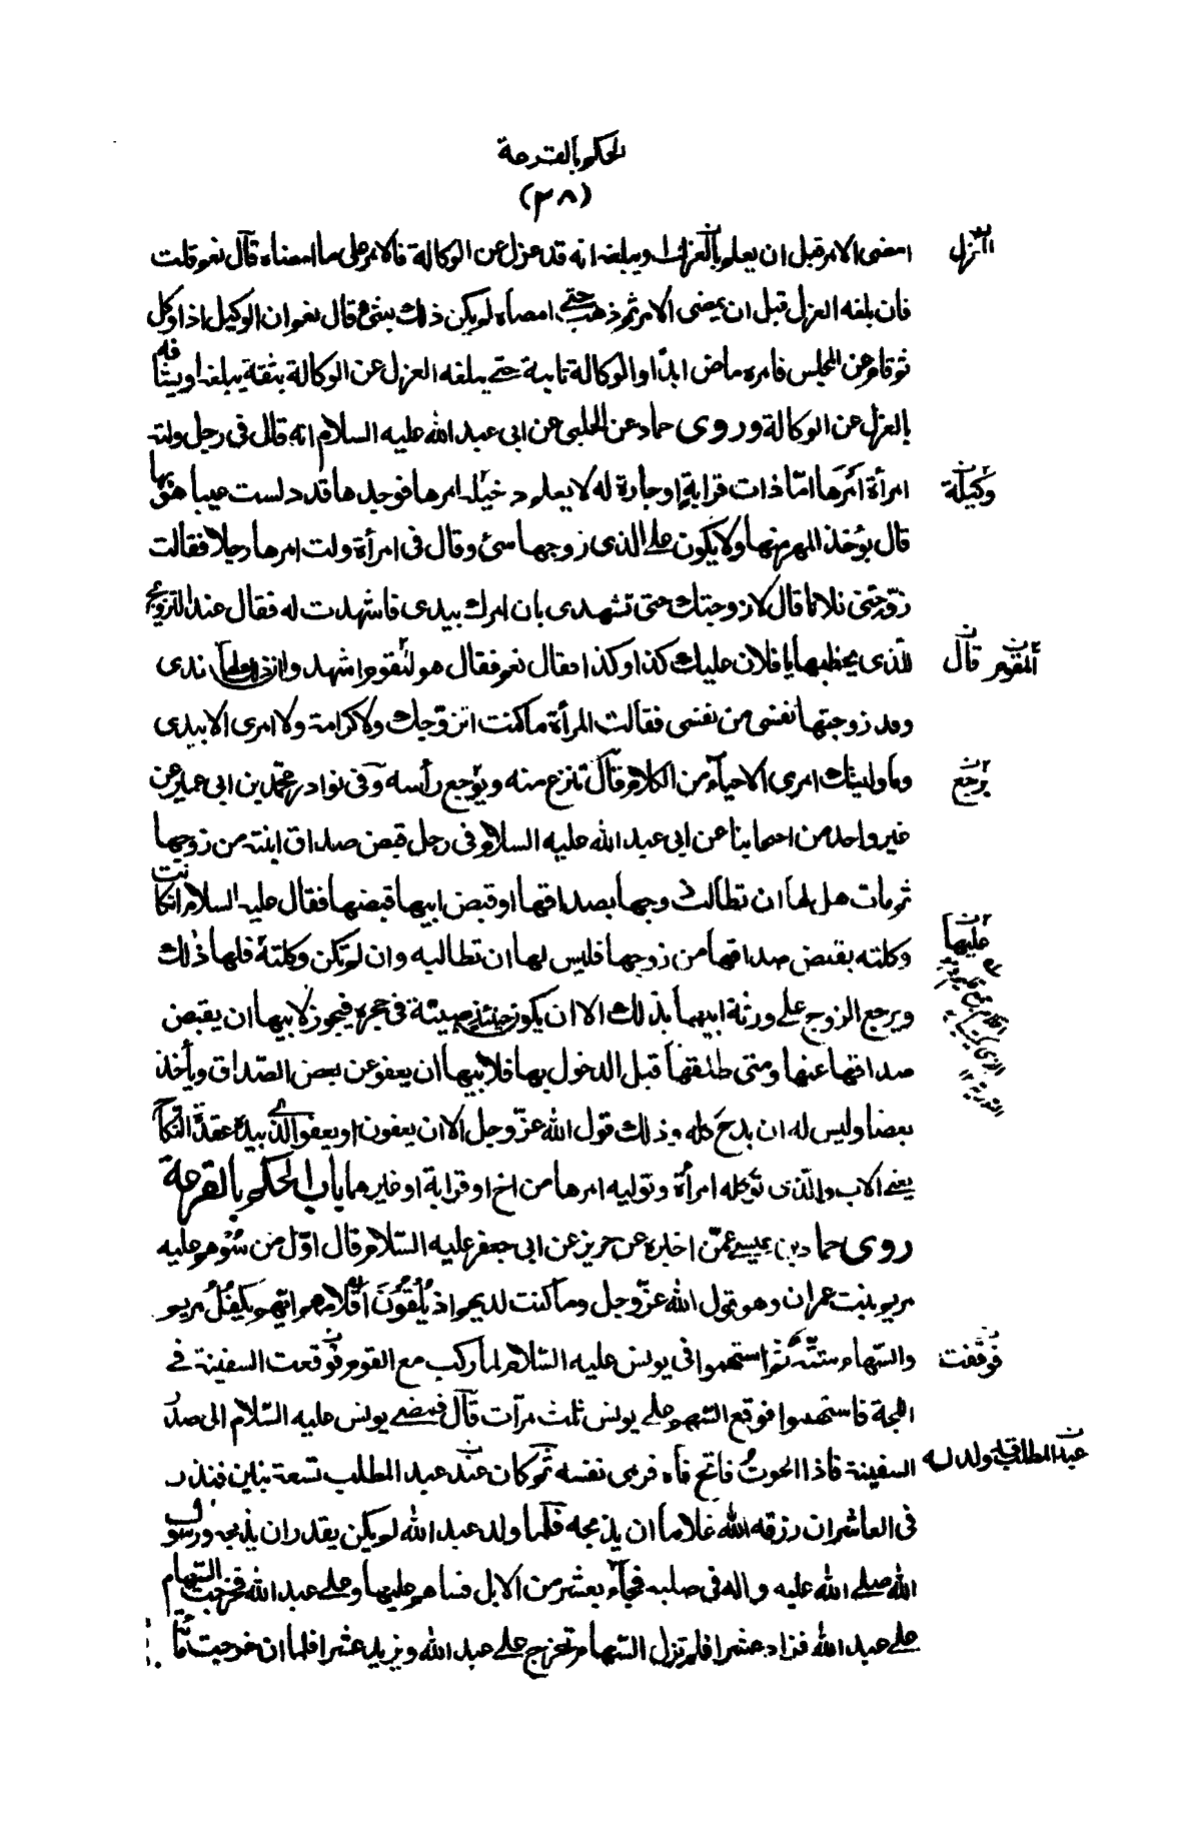 الحكم بالقرعة
(٣٨)
امضى الامر قبل ان يعلم بالعزل او يبلغه انه قد عزل عن الوكالة فالامر على ما امضاه قال نعم قلت
فان بلغه العزل قبل ان يمضى الامر ثم ذهب حتى امضاه لم يكن ذلك بشئ قال نعم ان الوكيل اذا وكل
ثم قام عن المجلس فامره ماض ابدًا والوكالة ثابتة حتى يبلغه العزل عن الوكالة بثقة يبلغه او يشافه
بالعزل عن الوكالة وروى حماد عن الحلبى عن ابى عبد الله عليه السلام انه قال فى رجل ولته
امرأة امرها امّا ذات قرابة او جارة له لا يعلم دخيلة امرها فوجدها قد دلست عيبا هو بها
قال يؤخذ المهر منها ولا يكون على الذى زوجها شئ وقال فى امرأة ولت امرها رجلا فقالت
زوّجنى فلانا قال لا زوجتك حتى تشهدى بان امرك بيدى فاشهدت له فقال عند التزويج
للذى يخطبها يا فلان عليك كذا وكذا فقال نعم فقال هو للقوم اشهدوا ان ذلك لها عندى
وقد زوجتها نفسى من نفسى فقالت المرأة ما كنت اتزوّجك ولا كرامة ولا امرى الا بيدى
وما وليتك امرى الا حياء من الكلام قال تنزع منه ويوجع رأسه وفى نوادر محمّد بن ابى عمير عن
غير واحد من اصحابنا عن ابى عبد الله عليه السلام فى رجل قبض صداق ابنته من زوجها
ثم مات هل لها ان تطالب زوجها بصداقها او قبض ابيها قبضها فقال عليه السلام ان كانت
وكلته بقبض صداقها من زوجها فليس لها ان تطالبه وان لم تكن وكلته فلها ذلك
ويرجع الزوج على ورثة ابيها بذلك الا ان يكون حينئذ صبيّة فى حجره فيجوز لابيها ان يقبض
صداقها عنها ومتى طلقها قبل الدخول بها فلابيها ان يعفو عن بعض الصّداق ويأخذ
بعضا وليس له ان يدع كله وذلك قول الله عزّ وجل الا ان يعفون او يعفو الّذى بيده عقدة النّكاح
يعنى الاب والّذى توكله امرأة وتوليه امرها من اخ او قرابة او غيرهما باب الحكم بالقرعة
روى حماد بن عيسى عمّن اخبره عن حريز عن ابى جعفر عليه السّلام قال اوّل من سُوهم عليه
مريم بنت عمران وهو قول الله عزّ وجل وما كنت لديهم اذ يُلْقُونَ اقْلامهم ايّهم يكفُلُ مريم
والسّهام ستّة ثم استهموا فى يونس عليه السّلام لما ركب مع القوم فوقعت السفينة فى
اللجة فاستهموا فوقع السّهم على يونس ثلث مرّات قال فمضى يونس عليه السّلام الى صدر
السفينة فاذا الحوتُ فاتح فاه فرمى نفسه ثم كان عند عبد المطلب تسعة بنين فنذر
فى العاشر ان رزقه الله غلاما ان يذبحه فلمّا ولد عبد الله لم يكن يقدر ان يذبحه ورسول
الله صلى الله عليه واله فى صلبه فجاء بعشر من الابل فساهم عليها وعلى عبد الله فخرجت السّهام
على عبد الله فزاد عشرا فلم تزل السّهام تخرج على عبد الله ويزيد عشرا فلما ان خرجت مائة
العزل
وكيلة
للقوم قال
يرجع
عليها
فوقفت
عبد المطلب ولد له